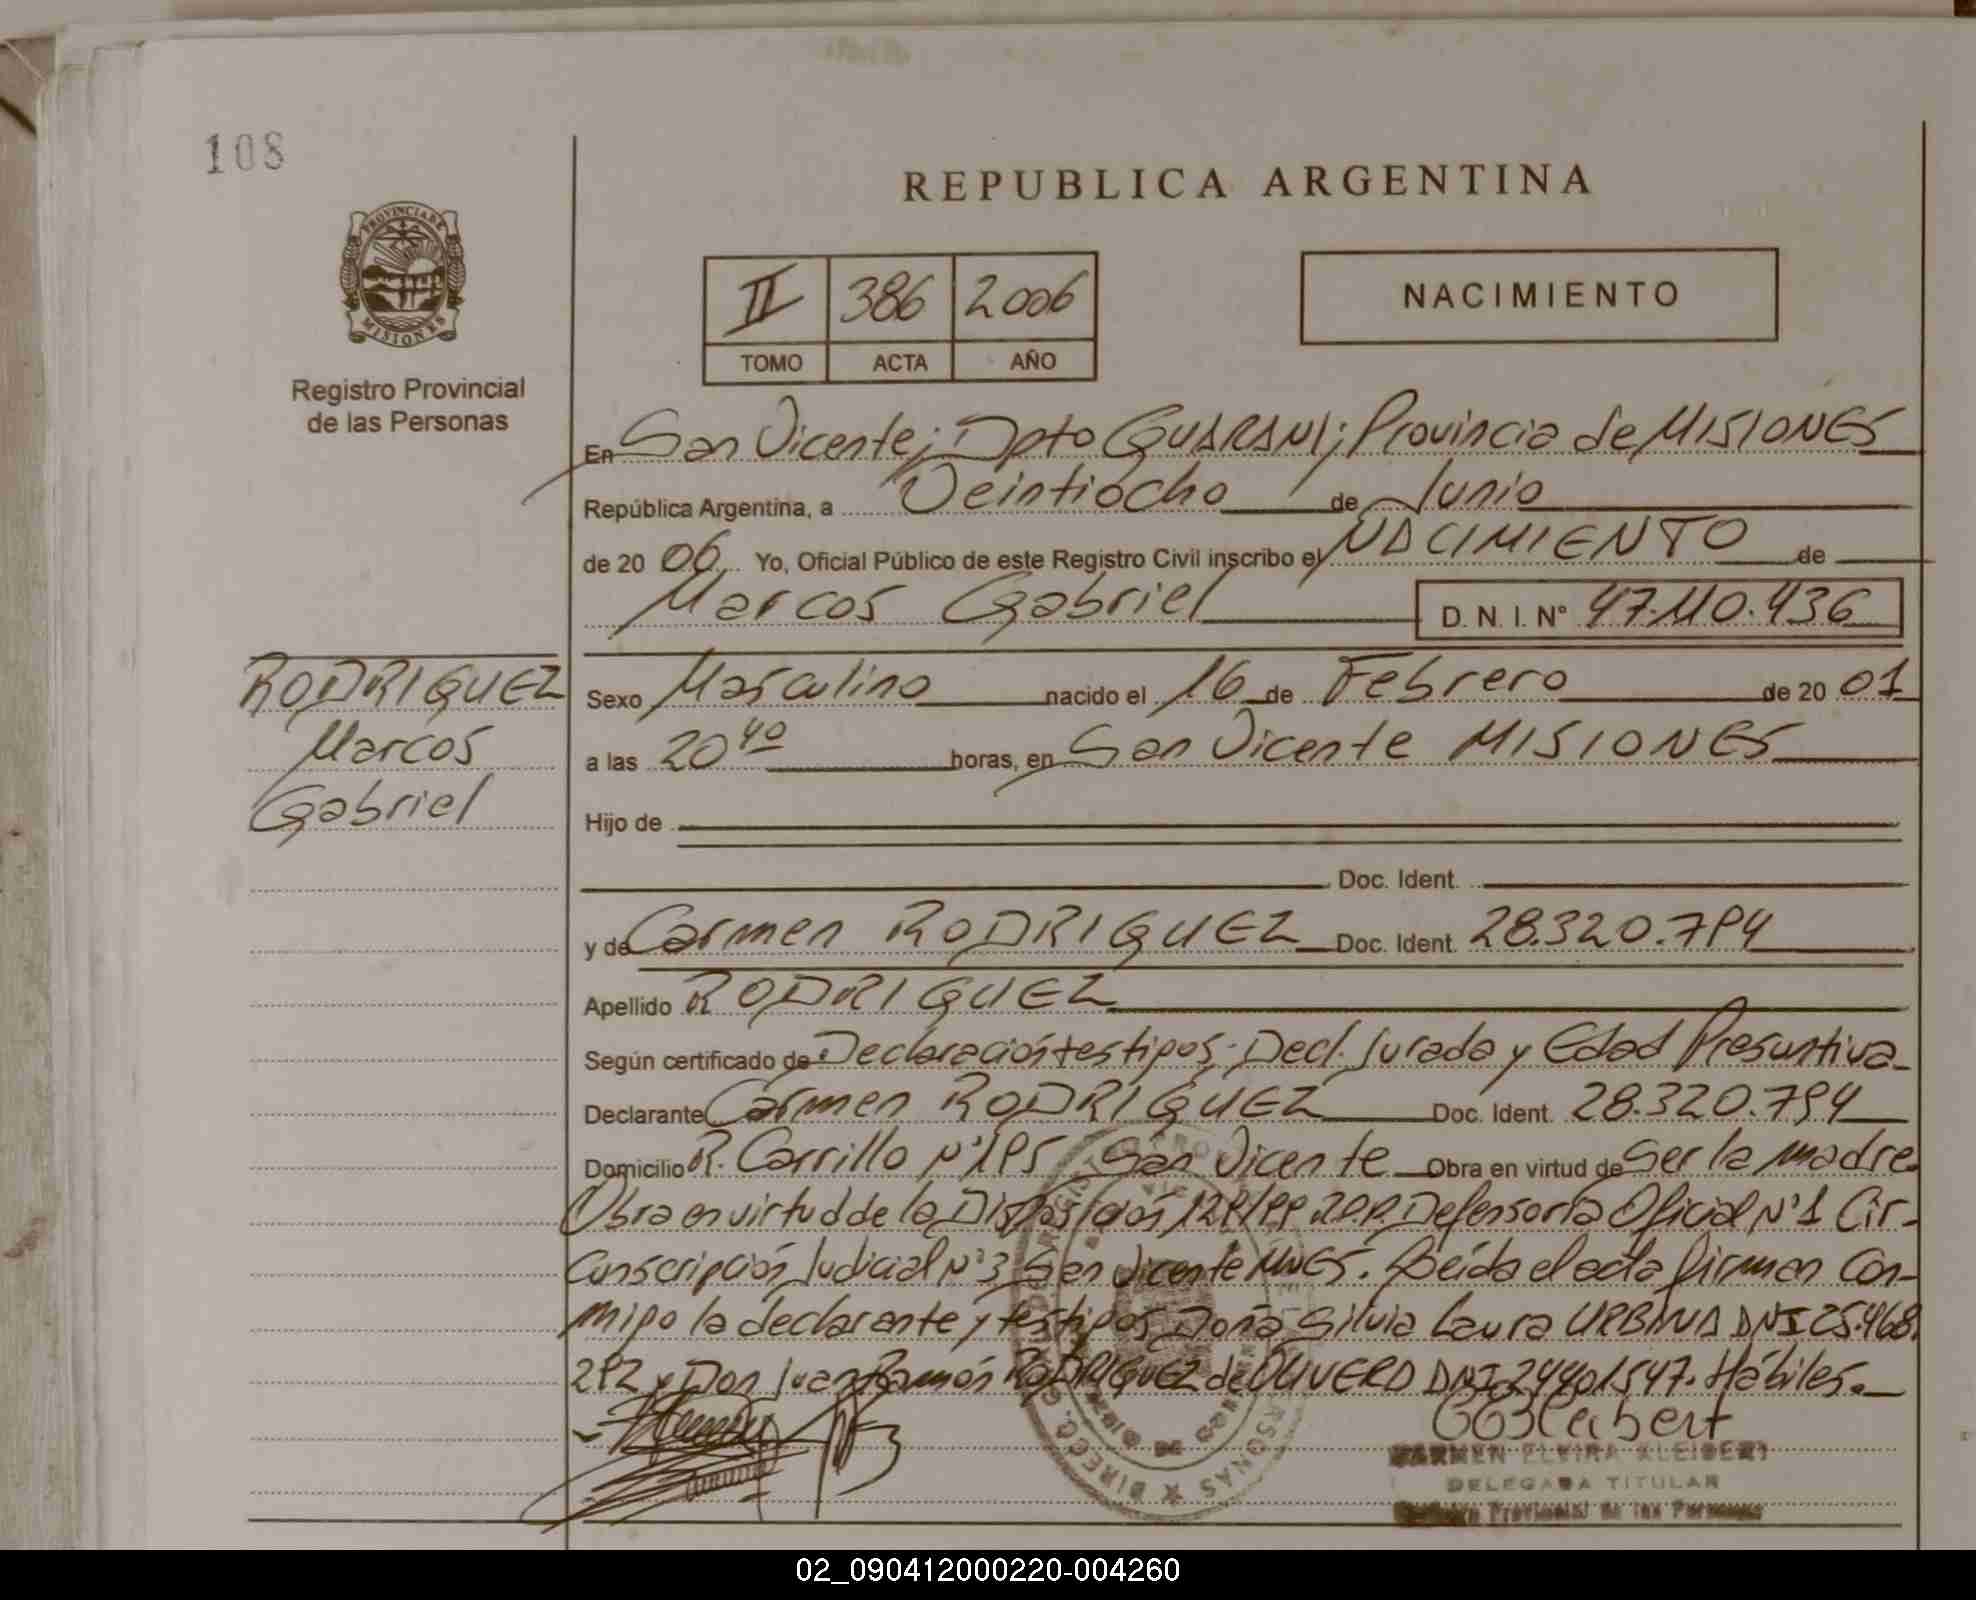 108
REPUBLICA ARGENTINA
PROVINCIA DE
MISIONES
Registro Provincial
de las Personas
II 386 2006
TOMO ACTA AÑO
NACIMIENTO
En San Vicente; Dpto GUARANI; Provincia de MISIONES
República Argentina, a Veintiocho de Junio
de 20 06 Yo, Oficial Público de este Registro Civil inscribo el NACIMIENTO de
Marcos Gabriel D. N. I. N° 47.110.436
RODRIGUEZ
Marcos
Gabriel
Sexo Masculino nacido el 16 de Febrero de 20 01
a las 20 40 horas, en San Vicente MISIONES
Hijo de
Doc. Ident.
y de Carmen RODRIGUEZ Doc. Ident. 28.320.794
Apellido RODRIGUEZ
Según certificado de Declaración testigos; Decl. Jurada y Edad Presuntiva
Declarante Carmen RODRIGUEZ Doc. Ident. 28.320.794
Domicilio R. Carrillo N° 195 San Vicente Obra en virtud de Ser la madre
Obra en virtud de la Disposición 129/99 Defensoría Oficial N° 1 Cir-
cunscripción Judicial N° 3 San Vicente MNES. Leída el acta firman con-
migo la declarante y testigos Doña Silvia Laura URBINA DNI 25.468.
292 y Don Juan Ramón RODRIGUEZ de OLIVERO DNI 24401547. Hábiles.
CARMEN ELVIRA KLEIBERT
DELEGADA TITULAR
Registro Provincial de las Personas
02_090412000220-004260